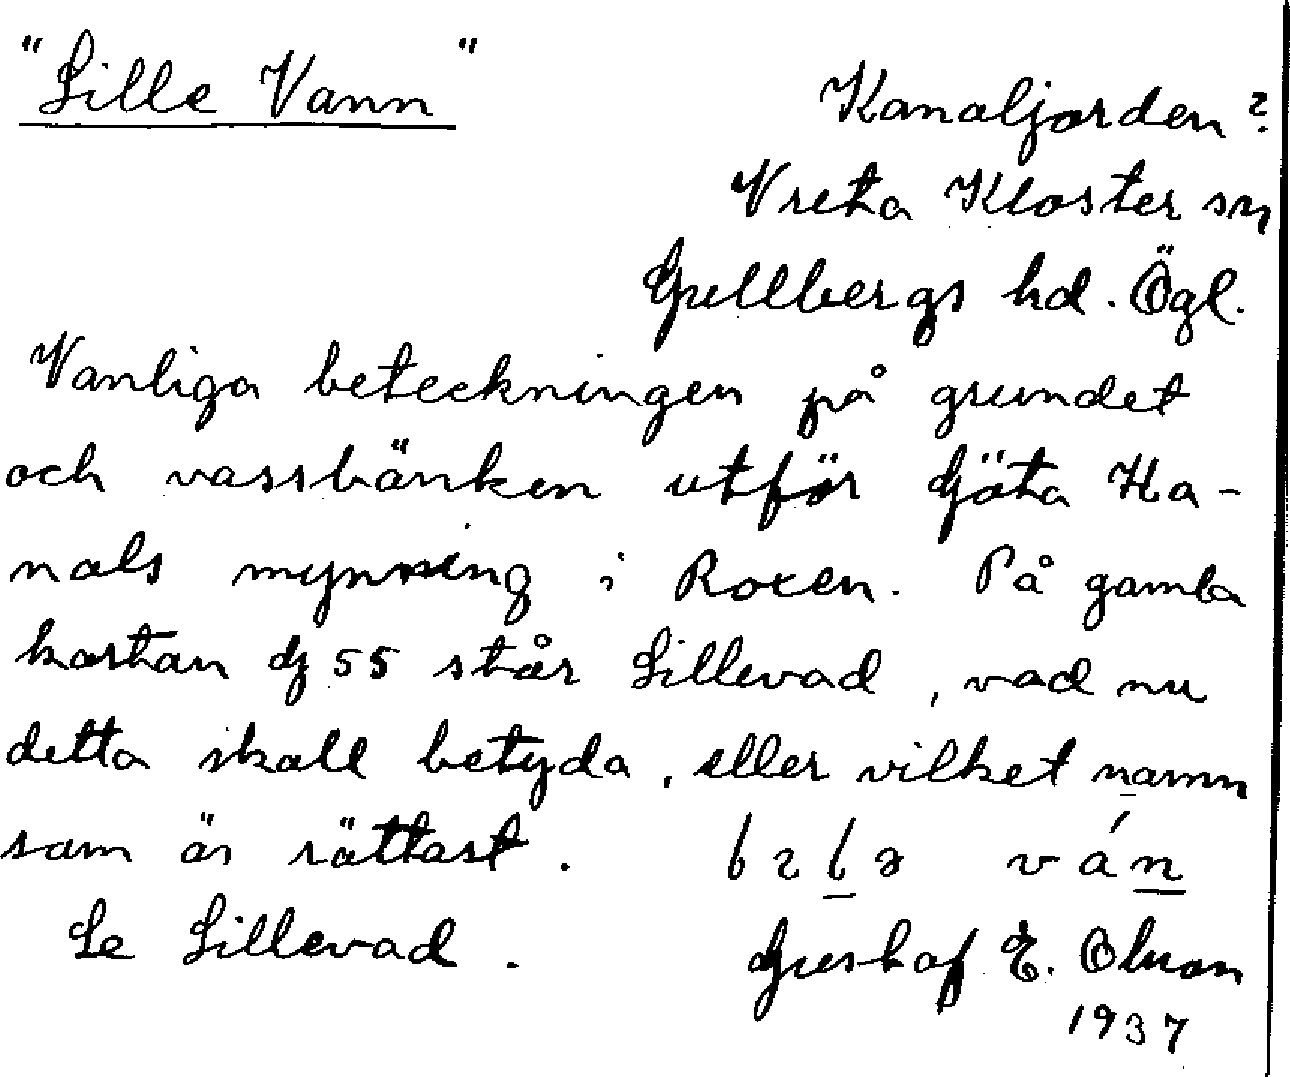 "Lille Vann"
Kanaljorden?
Vreta Kloster sn
Gullbergs hd. Ögl.
Vanliga beteckningen på grundet
och vassbänken utför Göta Ka-
nals mynning i Roxen. På gamla
kartan dz 55 står Lillevad, vad nu
detta skall betyda, eller vilket namn
som är rättast.
ván
Se Lillevad.
Gustaf E. Olson
1937